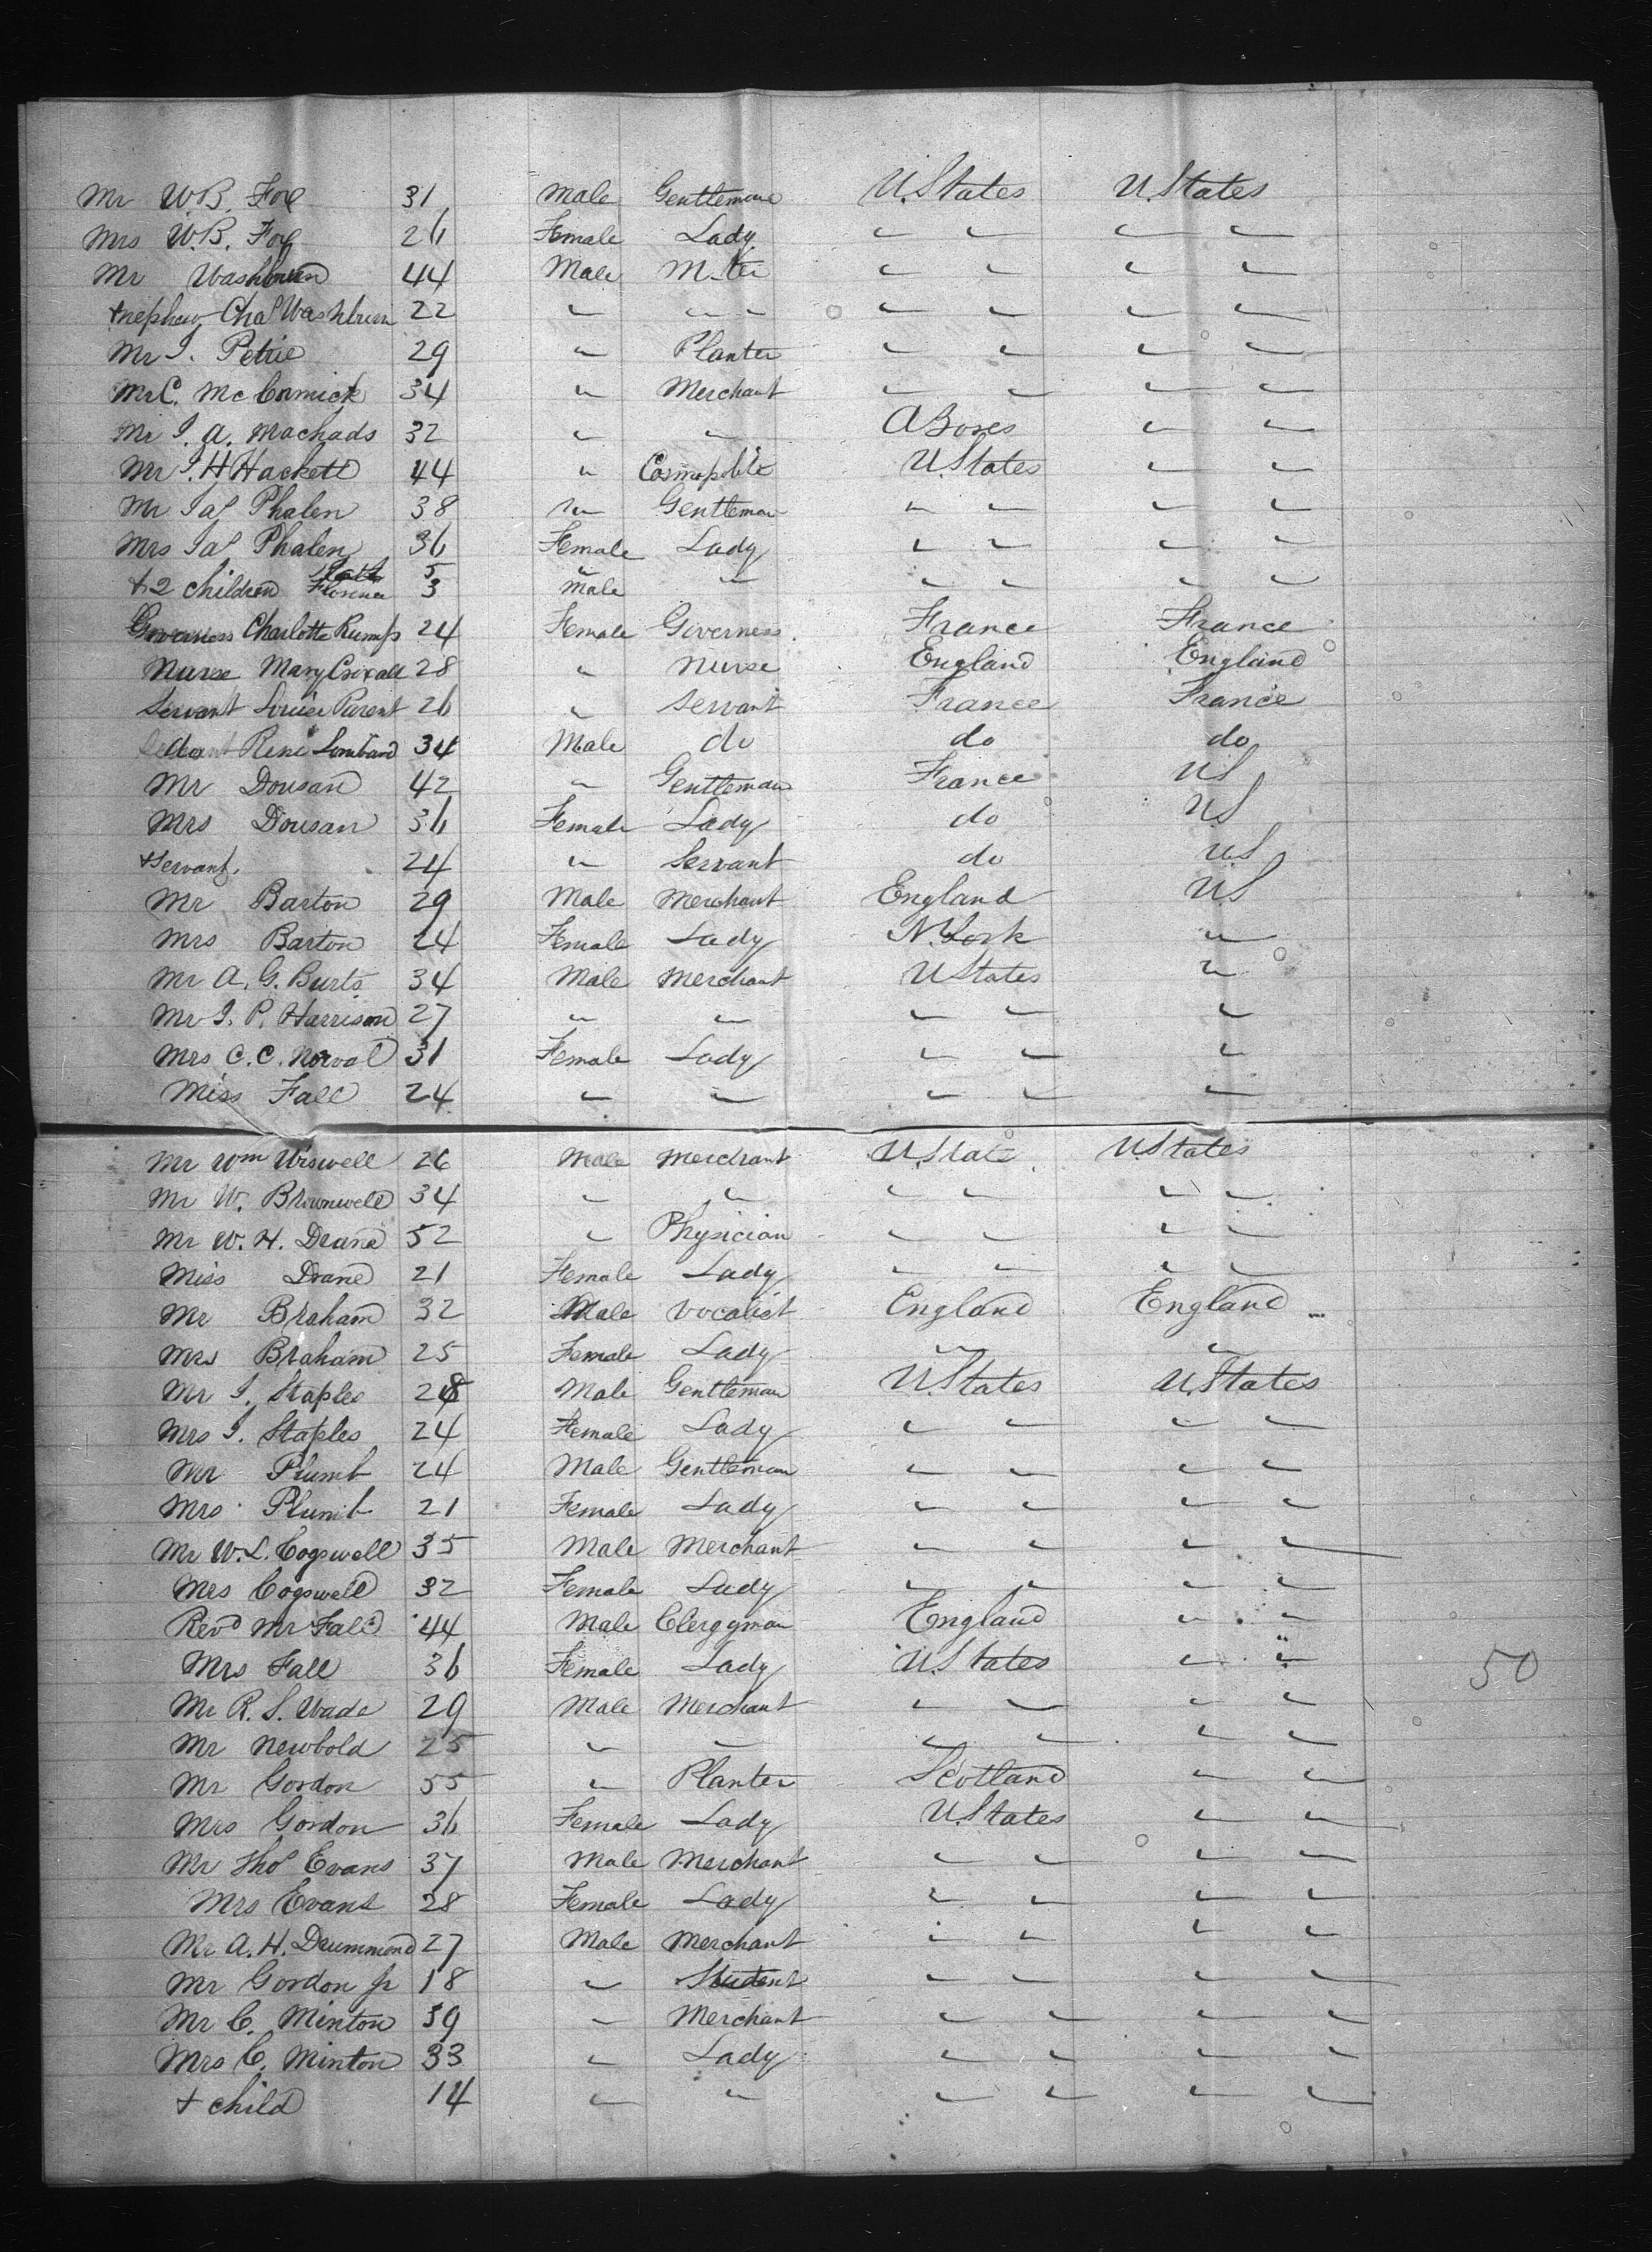 Mr W.B. Fox 31 Male Gentleman U.States U.States
Mrs W.B. Fox 26 Female Lady " " " "
Mr Washburn 44 Male " " " "
+nephew Chas Washburn 22 " " " " " " "
Mr J. Petrie 29 " Planter " " " "
Mr C. McCormick 34 " Merchant " " " "
Mr J. A. Machads 32 " " " "
Mr J. H Hackett 44 " Cosmopolite U.States " "
Mr Jas Phalen 38 " Gentleman " " " "
Mrs Jas Phalen 36 Female Lady " " " "
5 "
+2 children Florence 3 Male " " " " "
Governess Charlotte Rumpf 24 Female Governess France France
Nurse Mary 28 " Nurse England England
Servant Louise Parent 26 " Servant France France
do Rene Lombard 34 Male do do do
Mr Dousan 42 " Gentleman France US
Mrs Dousan 36 Female Lady do US
+servant. 24 " Servant do U.S
Mr Barton 29 Male Merchant England US
Mrs Barton 24 Female Lady N.York "
Mr A. G. Burts 34 Male Merchant UStates "
Mr J. P. Harrison 27 " " " " "
Mrs C. C. Norval 31 Female Lady " " "
Miss Fall 24 " " " " "
Mr Wm Wiswell 26 Male Merchant U.State U.States
Mr W. Brownwell 34 " " " " " "
Mr W. H. Drane 52 " Physician " " " "
Miss Drane 21 Female Lady " " " "
Mr Braham 32 Male Vocalist England England
Mrs Braham 25 Female Lady " "
Mr J. Staples 28 Male Gentleman U.States U.States
Mrs J. Staples 24 Female Lady " " " "
Mr Plumb 24 Male Gentleman " " " "
Mrs Plumb 21 Female Lady " " " "
Mr W. L. Cogswell 35 Male Merchant " " " "
Mrs Cogswell 32 Female Lady " " " "
Revd Mr Fall 44 Male Clergyman England " "
Mrs Fall 36 Female Lady U.States " " 50
Mr R. S. Wade 29 Male Merchant " " " "
Mr Newbold 25 " " " " " "
Mr Gordon 55 " Planter Scotland " "
Mrs Gordon 36 Female Lady U.States " "
Mr Thos Evans 37 Male Merchant " " " "
Mrs Evans 28 Female Lady " " " "
Mr A. H. Drummond 27 Male Merchant " " " "
Mr Gordon jr 18 " Student " " " "
Mr C. Minton 39 " Merchant " " " "
Mrs C. Minton 33 " Lady " " " "
+ child 14 " " " " " "